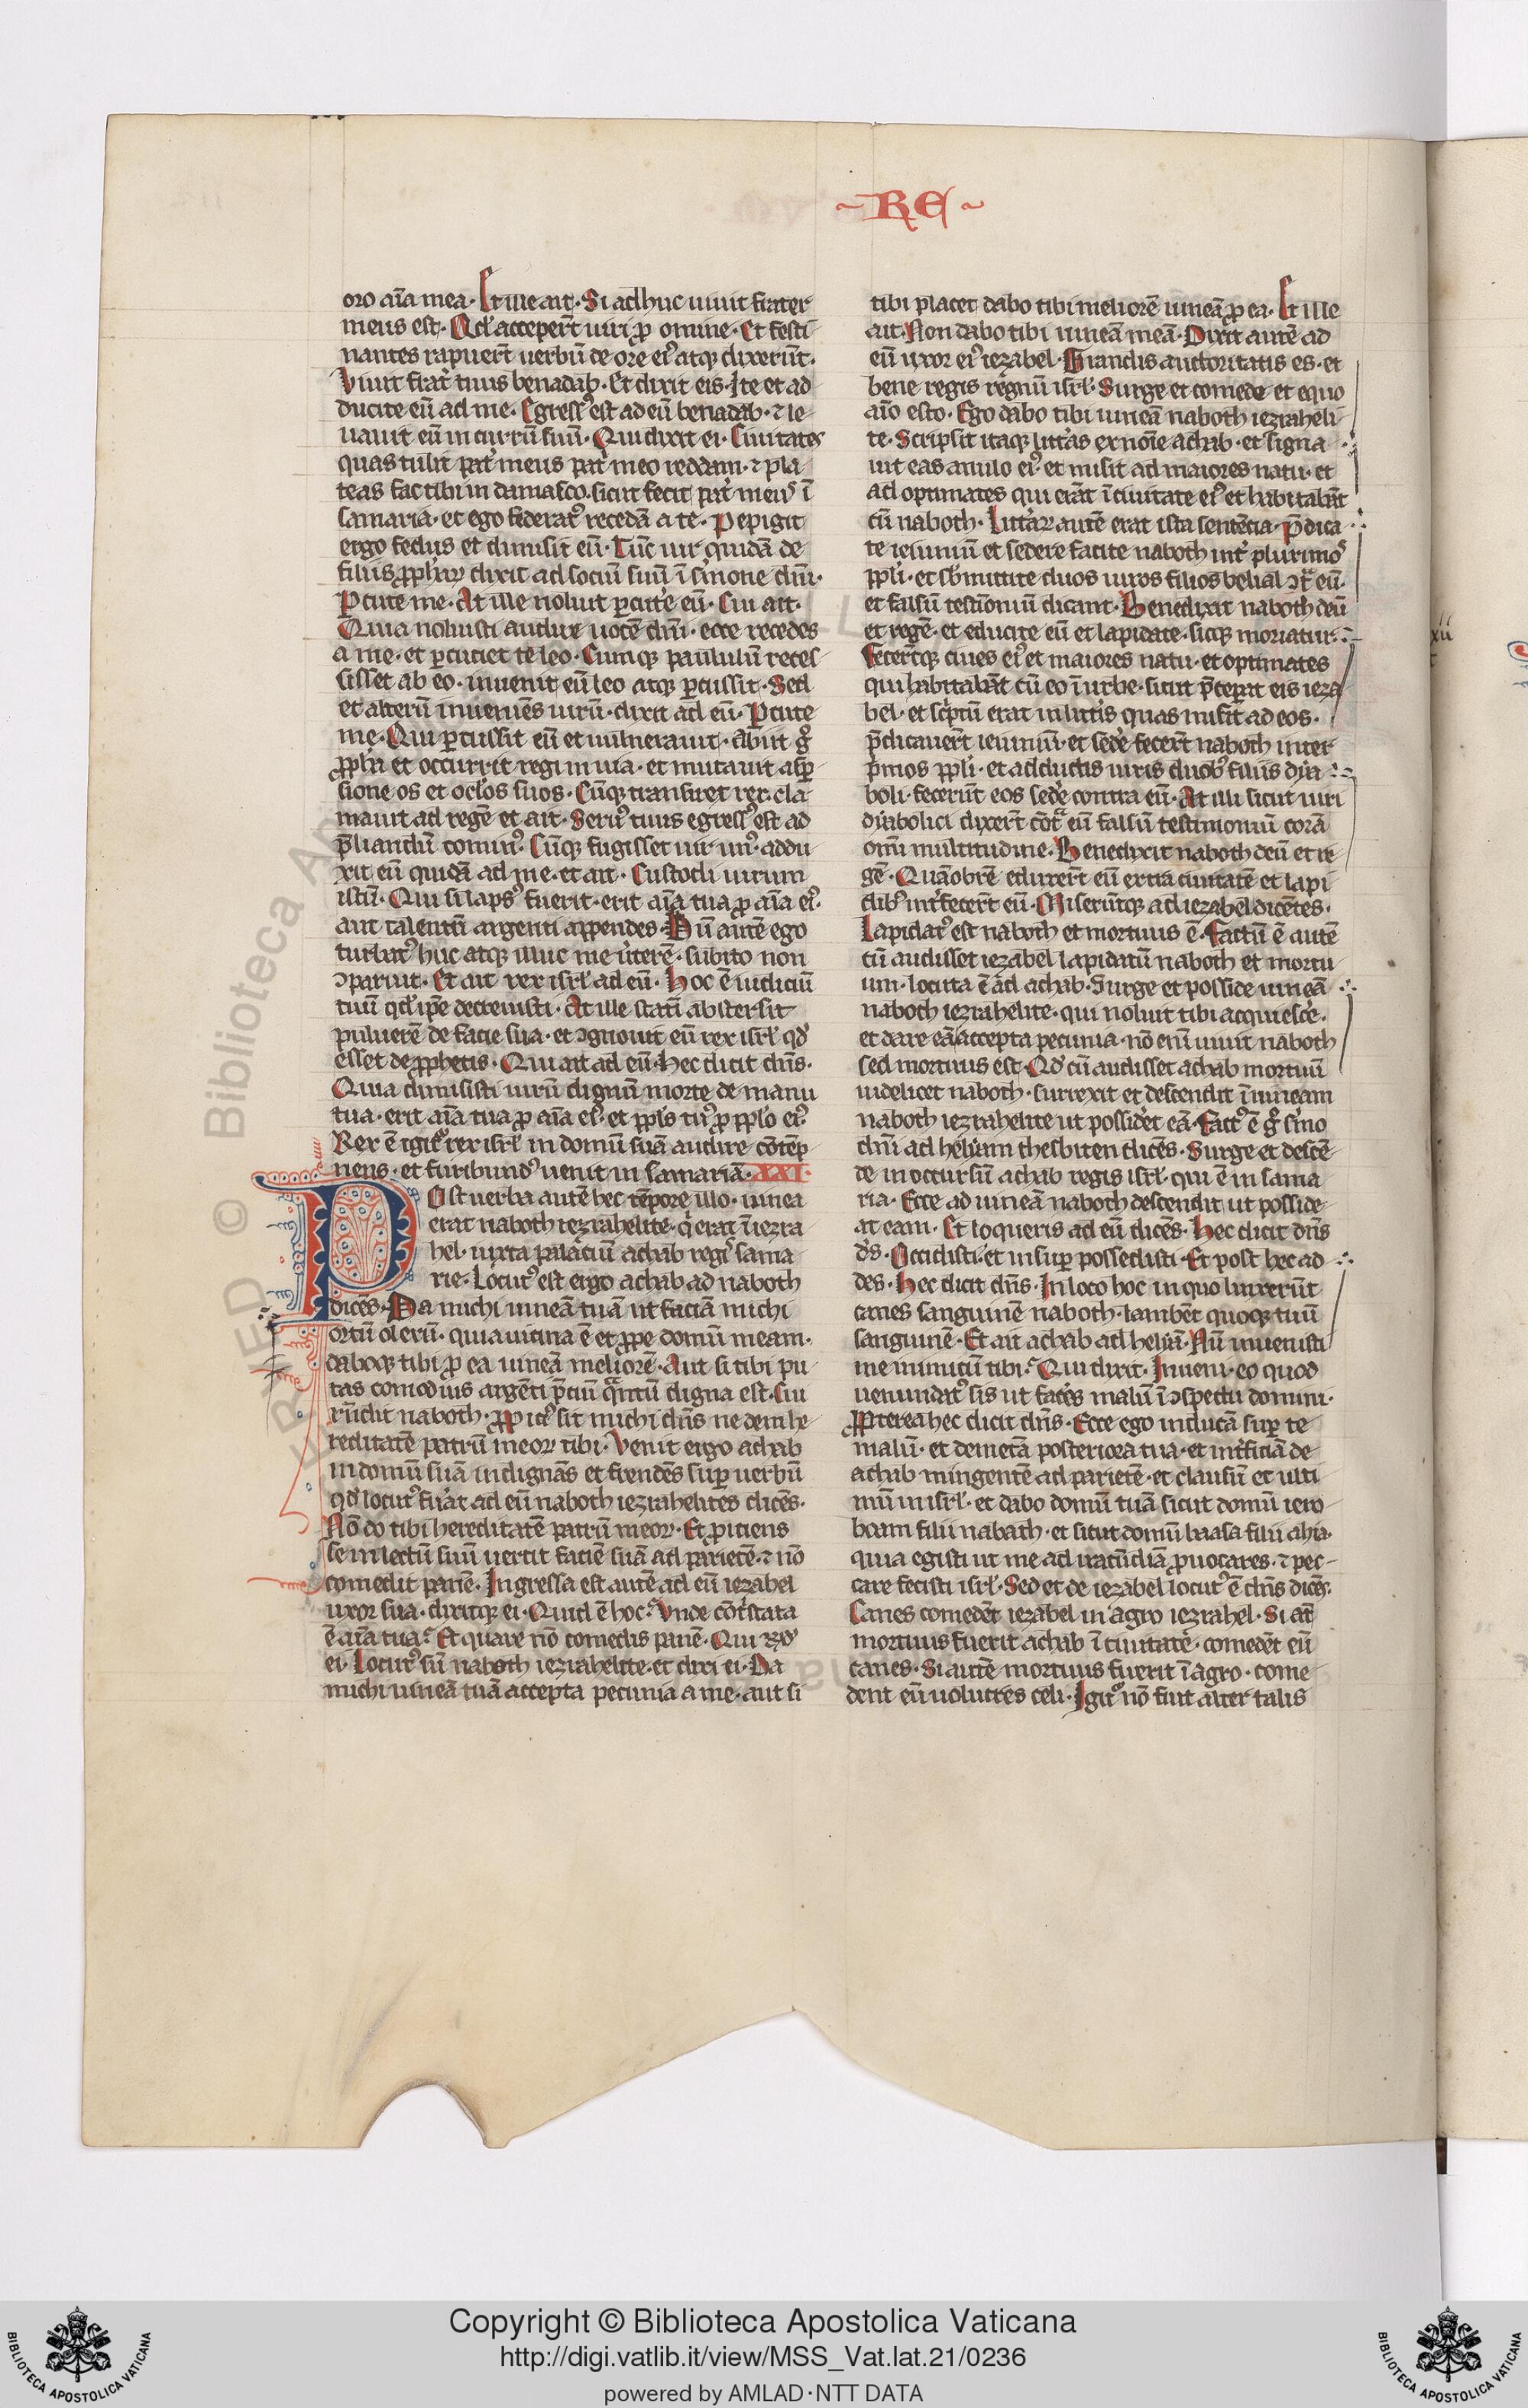 ~ RE ~
oro aīa mea. Et ille ait. Si adhuc uiuit frater
meus est. Qd' acceper̄t uiri ꝓ omine. Et festi
nantes rapuer̄t uerbū de ore ei᾽ atqꝫ dixerūt.
Viuit frat̓ tuus benadab. Et dixit eis. Ite et ad
ducite eū ad me. Egress᾽ est ad eū benadab. ⁊ le
uauit eū in currū suū. Qui dixit ei. Ciuitates
quas tulit pat̓ meus pat̓ meo reddam. ⁊ pla
teas fac tibi in damasco. sicut fecit pat̓ meus ī
samaria. et ego federat᾽ recedā a te. Pepigit
ergo fedus et dimisit eū. Tūc uir quidā de
filiis ꝓphaꝝ dixit ad sociū suū ī s̓mone dn̄i.
Ꝑcute me. At ille noluit ꝑcut̓e eū. Cui ait.
Quia noluisti audire uocē dn̄i. ecce recedes
a me. et ꝑcuciet te leo. Cumqꝫ paululū reces
sisset ab eo. inuenit eū leo atqꝫ ꝑcussit. Sed
et alterū inueniēs uirū. dixit ad eū. Ꝑcute
me. Qui ꝑcussit eū et uulnerauit. Abiit g̊
ꝓpha et occurrit regi in uia. et mutauit asꝑ
sione os et oc'los suos. Cūqꝫ transiret rex. cla
mauit ad regē et ait. Seru᾽ tuus egress᾽ est ad
p̄liandū comin᾽. Cūqꝫ fugisset uir un᾽. addu
xit eū quidā ad me. et ait. Custodi uirum
istū. Qui si laps᾽ fuerit. erit aīa tua ꝓ aīa ei᾽.
aut talentū argenti appendes. Dū autē ego
turbat᾽ huc atqꝫ illuc me u̓terē. subito non
ꝯparuit. Et ait rex isrl' ad eū. Hoc ē iudiciū
tuū qd' ip̄e decreuisti. At ille statī abstersit
puluerē de facie sua. et ꝯgnouit eū rex isrl' qd'
esset de ꝓphetis. Qui ait ad eū. Hec dicit dn̄s.
Quia dimisisti uirū dignū morte de manu
tua. erit aīa tua ꝓ aīa ei᾽. et ppl's tu᾽ ꝓ pplo ei᾽.
Reu᾽sus ē igit᾽ rex isrl' in domū suā audire cōtēp
nens. et furibund᾽ uenit in samariā. XXI.
Post uerba autē hec tēpore illo. uinea
erat naboth iezrahelite. q̓ erat ī iezra
hel. iuxta palaciū achab reg᾽ sama
rie. Locut᾽ est ergo achab ad naboth
dicēs. Da michi uineā tuā ut faciā michi
ortū olerū. quia uicina ē et ꝓpe domū meam.
daboqꝫ tibi ꝓ ea uineā meliorē. Aut si tibi pu
tas comodius argēti p̄ciū q̄ntū digna est. Cui
rn̄dit naboth. ꝓpici᾽ sit michi dn̄s ne dem he
reditatē patrū meoꝝ tibi. Venit ergo achab
in domū suā indignās et frendēs suꝑ uerbū
qd' locut᾽ fu̓at ad eū naboth iezrahelites dicēs.
Nō do tibi hereditatē patrū meoꝝ. Et ꝓiciens
se in lectū suū uertit faciē suā ad parietē. ⁊ nō
comedit panē. Ingressa est autē ad eū iezabel
uxor sua. dixitqꝫ ei. Quid ē hoc. Vnde cōt̓stata
ē aīa tua. Et quare nō comedis panē. Qui rn̄d'
ei. Locut᾽ sū naboth iezrahelite. et dixi ei. Da
michi uineā tuā accepta pecunia a me. aut si
tibi placet dabo tibi meliorē uineā ꝓ ea. Et ille
ait. Non dabo tibi uineā meā. Dixit autē ad
eū uxor ei᾽ iezabel. Grandis auctoritatis es. et
bene regis regnū isrl'. Surge et comede et equo
aīo esto. Ego dabo tibi uineā naboth iezraheli
te. Scripsit itaqꝫ litt̓as ex noīe achab. et signa
uit eas anulo ei᾽. et misit ad maiores natu. et
ad optimates qui erāt ī ciuitate ei᾽ et habitabāt
cū naboth. Litt̓aꝝ autē erat ista sentētia. p̄dica
te ieiuniū et sedere facite naboth int̓ p̓mos
ppl'i. et sb̓mittite duos uiros filios belial ꝯt̄ eū.
et falsū testīoniū dicant. Benedixit naboth deū
et regē. et educite eū et lapidate. sicqꝫ moriatur.
Fecer̄tqꝫ ciues ei᾽ et maiores natu. et optimates
qui habitabāt cū eo ī urbe. sicut p̄cepat eis ieza
bel. et sc̓ptū erat in litt̓is quas misit ad eos.
p̄dicauer̄t ieiuniū. et sed̓e fecer̄t naboth inter
p̓mos ppl'i. et adductis uiris duob᾽ filiis dya
boli. fecerūt eos sed̓e contra eū. At illi sicut uiri
dyabolici dixer̄t cōt̄ eū falsū testimoniū corā
om̄i multitudine. Benedixit naboth deū et re
gē. Quāobrē eduxer̄t eū extra ciuitatē et lapi
dib᾽ int̓fecer̄t eū. Miserūtqꝫ ad iezabel dicētes.
Lapidat᾽ est naboth et mortuus ē. Factū ē autē
cū audisset iezabel lapidatū naboth et mortu
um. locuta ē ad achab. Surge et posside uineā
naboth iezrahelite. qui noluit tibi acquiesc̓e.
et dare eā accepta pecunia. nō enī uiuit naboth
sed mortuus est. Qd' cū audisset achab mortuū
uidelicet naboth. surrexit et descendit ī uineam
naboth iezrahelite ut possid̓et eā. Fact᾽ ē g̊ s̓mo
dn̄i ad helyam thesbiten dicēs. Surge et descē
de in occursū achab regis isrl'. qui ē in sama
ria. Ecce ad uineā naboth descendit ut posside
at eam. Et loqueris ad eū dicēs. Hec dicit dn̄s
d's. Occidisti. et insuꝑ possedisti. Et post hec ad
des. Hec dicit dn̄s. In loco hoc in quo linxerūt
canes sanguinē naboth. lambēt quoqꝫ tuū
sanguinē. Et ait achab ad helyā. Nū inuenisti
me inimicū tibi. Qui dixit. Inueni. eo quod
uenundat᾽ sis ut faceˢ malū ī ꝯspectu domini.
ꝓpterea hec dicit dn̄s. Ecce ego inducā suꝑ te
malū. et demetā posteriora tua. et int̓ficiā de
achab mingentē ad parietē. et clausū et ulti
mū in isrl'. et dabo domū tuā sicut domū iero
boam filii nabath. et sicut domū baasa filii ahia.
quia egisti ut me ad iracūdiā ꝓuocares. ⁊ pec
care fecisti isrl'. Sed et de iezabel locut᾽ ē dn̄s dicēs.
Canes comedēt iezabel in agro iezrahel. Si at̄
mortuus fuerit achab ī ciuitate. comedēt eū
canes. Si autē mortuus fuerit ī agro. come
dent eū uolucres celi. Igit᾽ nō fuit alter talis
Copyright © Biblioteca Apostolica Vaticana
http://digi.vatlib.it/view/MSS_Vat.lat.21/0236
powered by AMLAD·NTT DATA
BIBLIOTECA APOSTOLICA VATICANA
BIBLIOTECA APOSTOLICA VATICANA